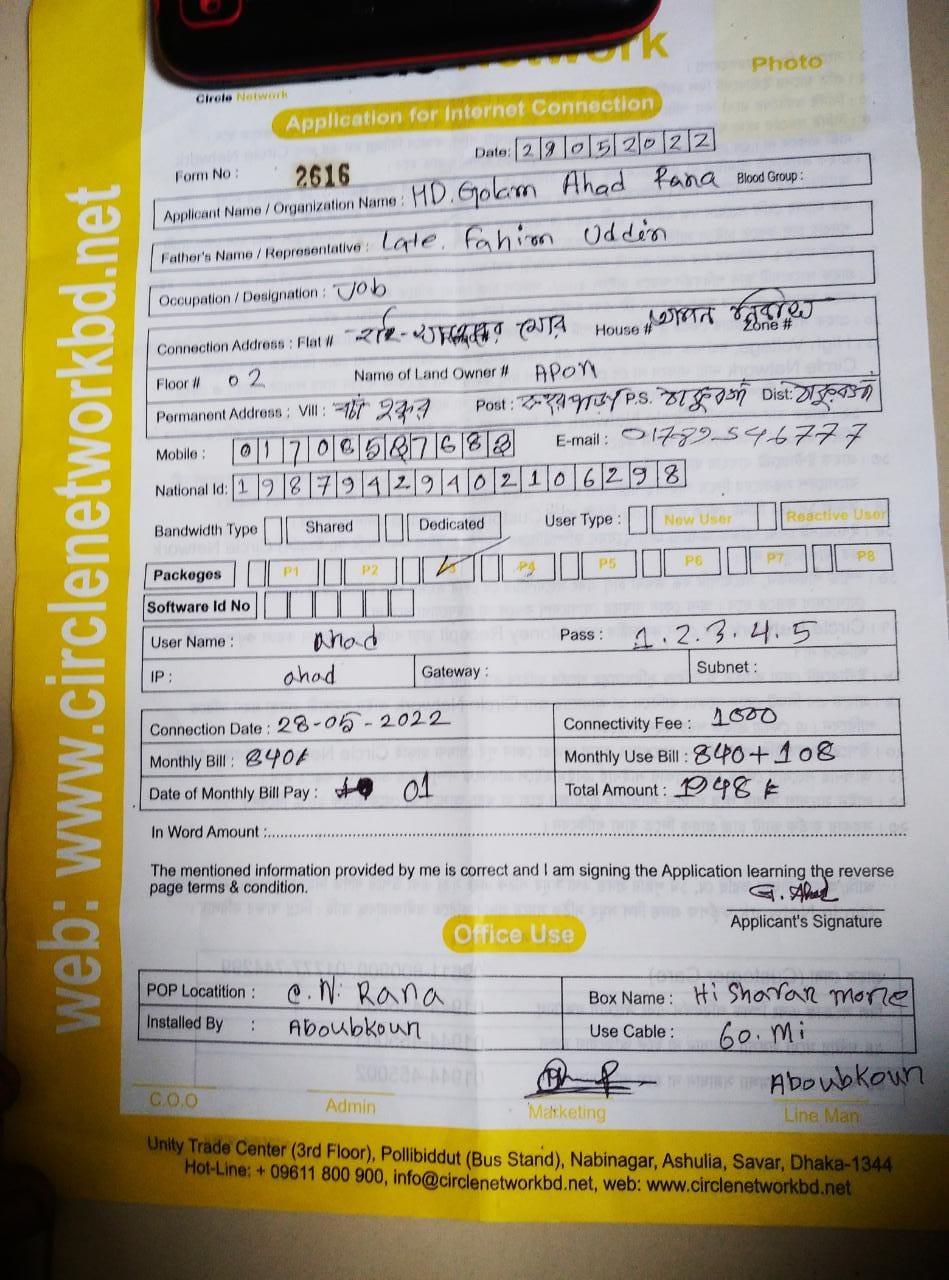 Network
Photo
Circle Network
Application for Internet Connection
Date: 28052022
Form No : 2616
Applicant Name / Organization Name : MD. Golam Ahad Rana Blood Group :
Father's Name / Representative : Late. Fahim Uddin
Occupation / Designation : Job
Connection Address : Flat # মোর House # আপন নিবাস Zone #
Floor # 02 Name of Land Owner # APON
Permanent Address : Vill : Post : P.S. ঠাকুরগাঁ Dist: ঠাকুরগাঁ
Mobile : E-mail : 01789-546777
National Id: 19879429402106298
Bandwidth Type Shared Dedicated User Type : New User Reactive User
Packeges P1 P2 P3 P4 P5 P6 P7 P8
Software Id No
User Name : ahad Pass : 1.2.3.4.5
IP : ahad Gateway : Subnet :
Connection Date : 28-05-2022 Connectivity Fee : 1000
Monthly Bill : 840৳ Monthly Use Bill : 840+108
Date of Monthly Bill Pay : 01 Total Amount : 1948৳
In Word Amount :
The mentioned information provided by me is correct and I am signing the Application learning the reverse
page terms & condition.
G. Ahad
Applicant's Signature
Office Use
POP Locatition : C.N: Rana Box Name : Hi Sharan more
Installed By : Aboubkoun Use Cable : 60.Mi
Aboubkoun
C.O.O Admin Marketing Line Man
Unity Trade Center (3rd Floor), Pollibiddut (Bus Stand), Nabinagar, Ashulia, Savar, Dhaka-1344
Hot-Line: + 09611 800 900, info@circlenetworkbd.net, web: www.circlenetworkbd.net
web: www.circlenetworkbd.net